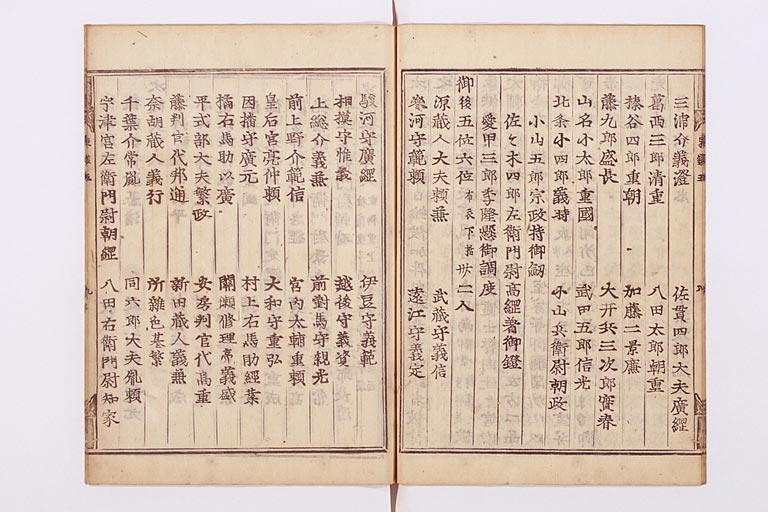 三浦介義澄 佐貫四郎大夫廣綱
葛西三郎清重 八田太郎朝重
榛谷四郎重朝 加藤二景廉
藤九郎盛長 大井兵三次郎實春
山名小太郎重國 武田五郎信光
北条小四郎義時 小山兵衛尉朝政
小山五郎宗政持御劔
佐々木四郎左衛門尉高綱著御鎧
愛甲三郎季隆懸御調度
御後五位六位布衣下括卅二人
源蔵人大夫頼兼 武蔵守義信
参河守範頼 遠江守義定
駿河守廣綱 伊豆守義範
相摸守惟義 越後守義資
上総介義兼 前對馬守親光
前上野介範信 宮内大輔重頼
皇后宮亮仲頼 大和守重弘
因播守廣元 村上右馬助經業
橘右馬助以廣 關瀬修理亮義盛
平式部大夫繁政 安房判官代高重
藤判官代邦通 新田蔵人義兼
奈胡蔵人義行 所雜色基繁
千葉介常胤 同六郎大夫胤頼
宇津宮左衛門尉朝綱 八田右衛門尉知家